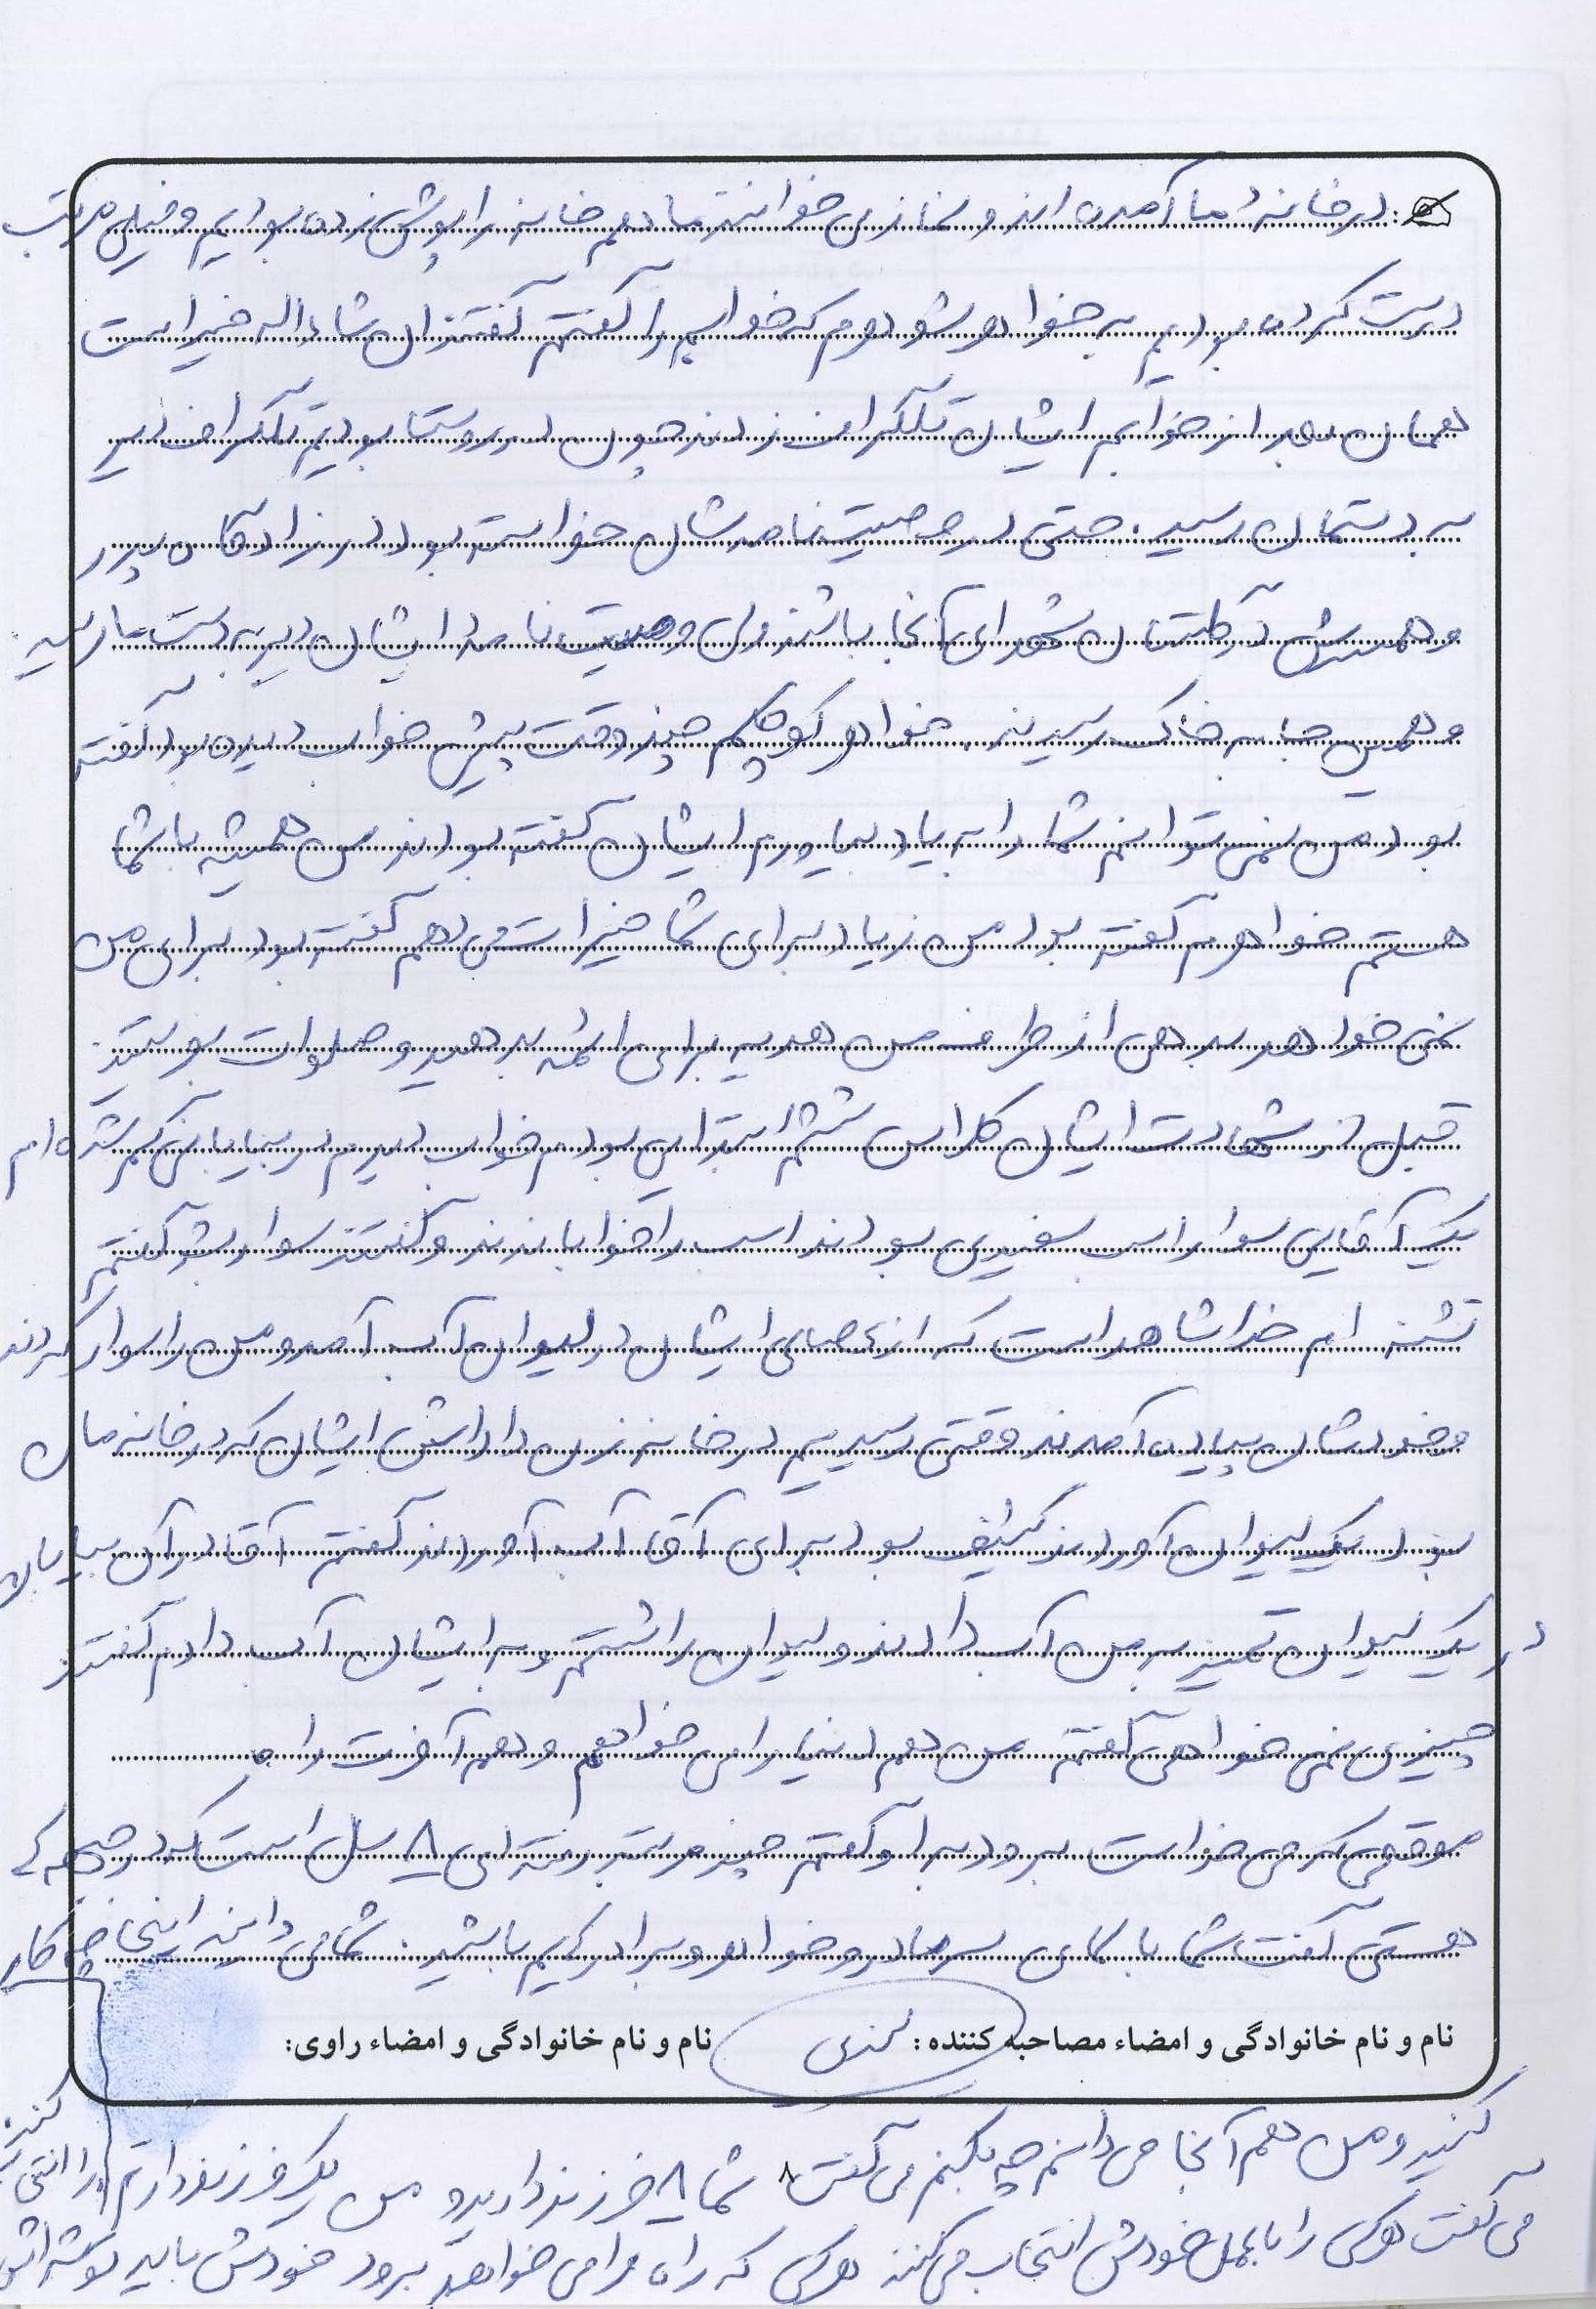 در خانه ما آمده اند و نماز می خوانند ما هم خانه را پوش زده بودیم و خیلی مرتب
درست کرده بودیم به خواهر شوهرم که خوابم را گفتم گفتند ان شاءاله خیر است
همان بعد از خوابم ایشان تلگراف زدند چون در روستا بودیم تلگراف دیر
به دستمان رسید. حتی در وصیت نامه شان خواسته بودند در زادگاه پدر
و همسرش در گلستان شهدای آنجا باشند ولی وصیت نامه ایشان دیر به دست ما رسید
و همین جا به خاک رسیدند. خواهر کوچکم چند وقت پیش خواب دیده بود گفته
بود من نمی توانم شما را به یاد بیاورم ایشان گفته بودند من همیشه با شما
هستم خواهرم گفته بود من زیاد برای شما خیرات می دهم گفته بود برای من
نمی خواهد بدهی از طرف من هدیه برای ائمه بدهید و صلوات بفرستید
قبل از شهادت ایشان کلاس ششم ابتدایی بودم خواب دیدم در بیابانی گم شده ام
یک آقایی سوار اسب سفیدی بودند اسب را خواباندند و گفتند سوار بشو گفتم
تشنه ام خدا شاهد است که از عصای ایشان در لیوان آب آمد و من را سوار کردند
و خودشان پیاده آمدند وقتی رسیدیم در خانه زن داداش ایشان که در خانه مان
بود یک لیوان آوردند کثیف بود برای آقا آب آوردند گفتم آقا در آن بیابان
در یک لیوان تمیز به من آب دادند و لیوان را شستم و به ایشان آب دادم گفتند
چیزی نمی خواهی گفتم من هم دنیا را می خواهم و هم آخرت را.
موقعی که می خواست برود به او گفتم چند مرتبه رفته ای ۸ سال است که در جبهه
هستی گفت شما با کمک مادر و خواهر و برادر کریم باشید. شما می دانید اینجا چه کار
نام و نام خانوادگی و امضاء مصاحبه کننده: نام و نام خانوادگی و امضاء راوی:
کنید و من هم آنجا می دانم چه بکنم می گفت شما ۸ فرزند دارید و من یک فرزند دارم
می گفت هر کس را با عمل خودش انتخاب می کنند هر کس که راه مرا می خواهد برود خودش باید